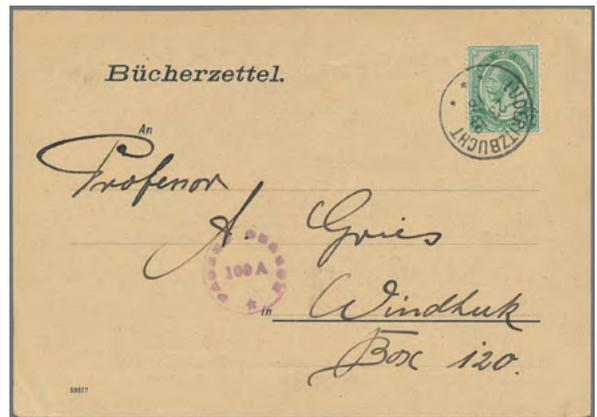 Bücherzettel.
LUDERITZBUCHT
An
Professor
A. Gries
PASSED CENSOR
100 A
in Windhuk
Box 120.
59977